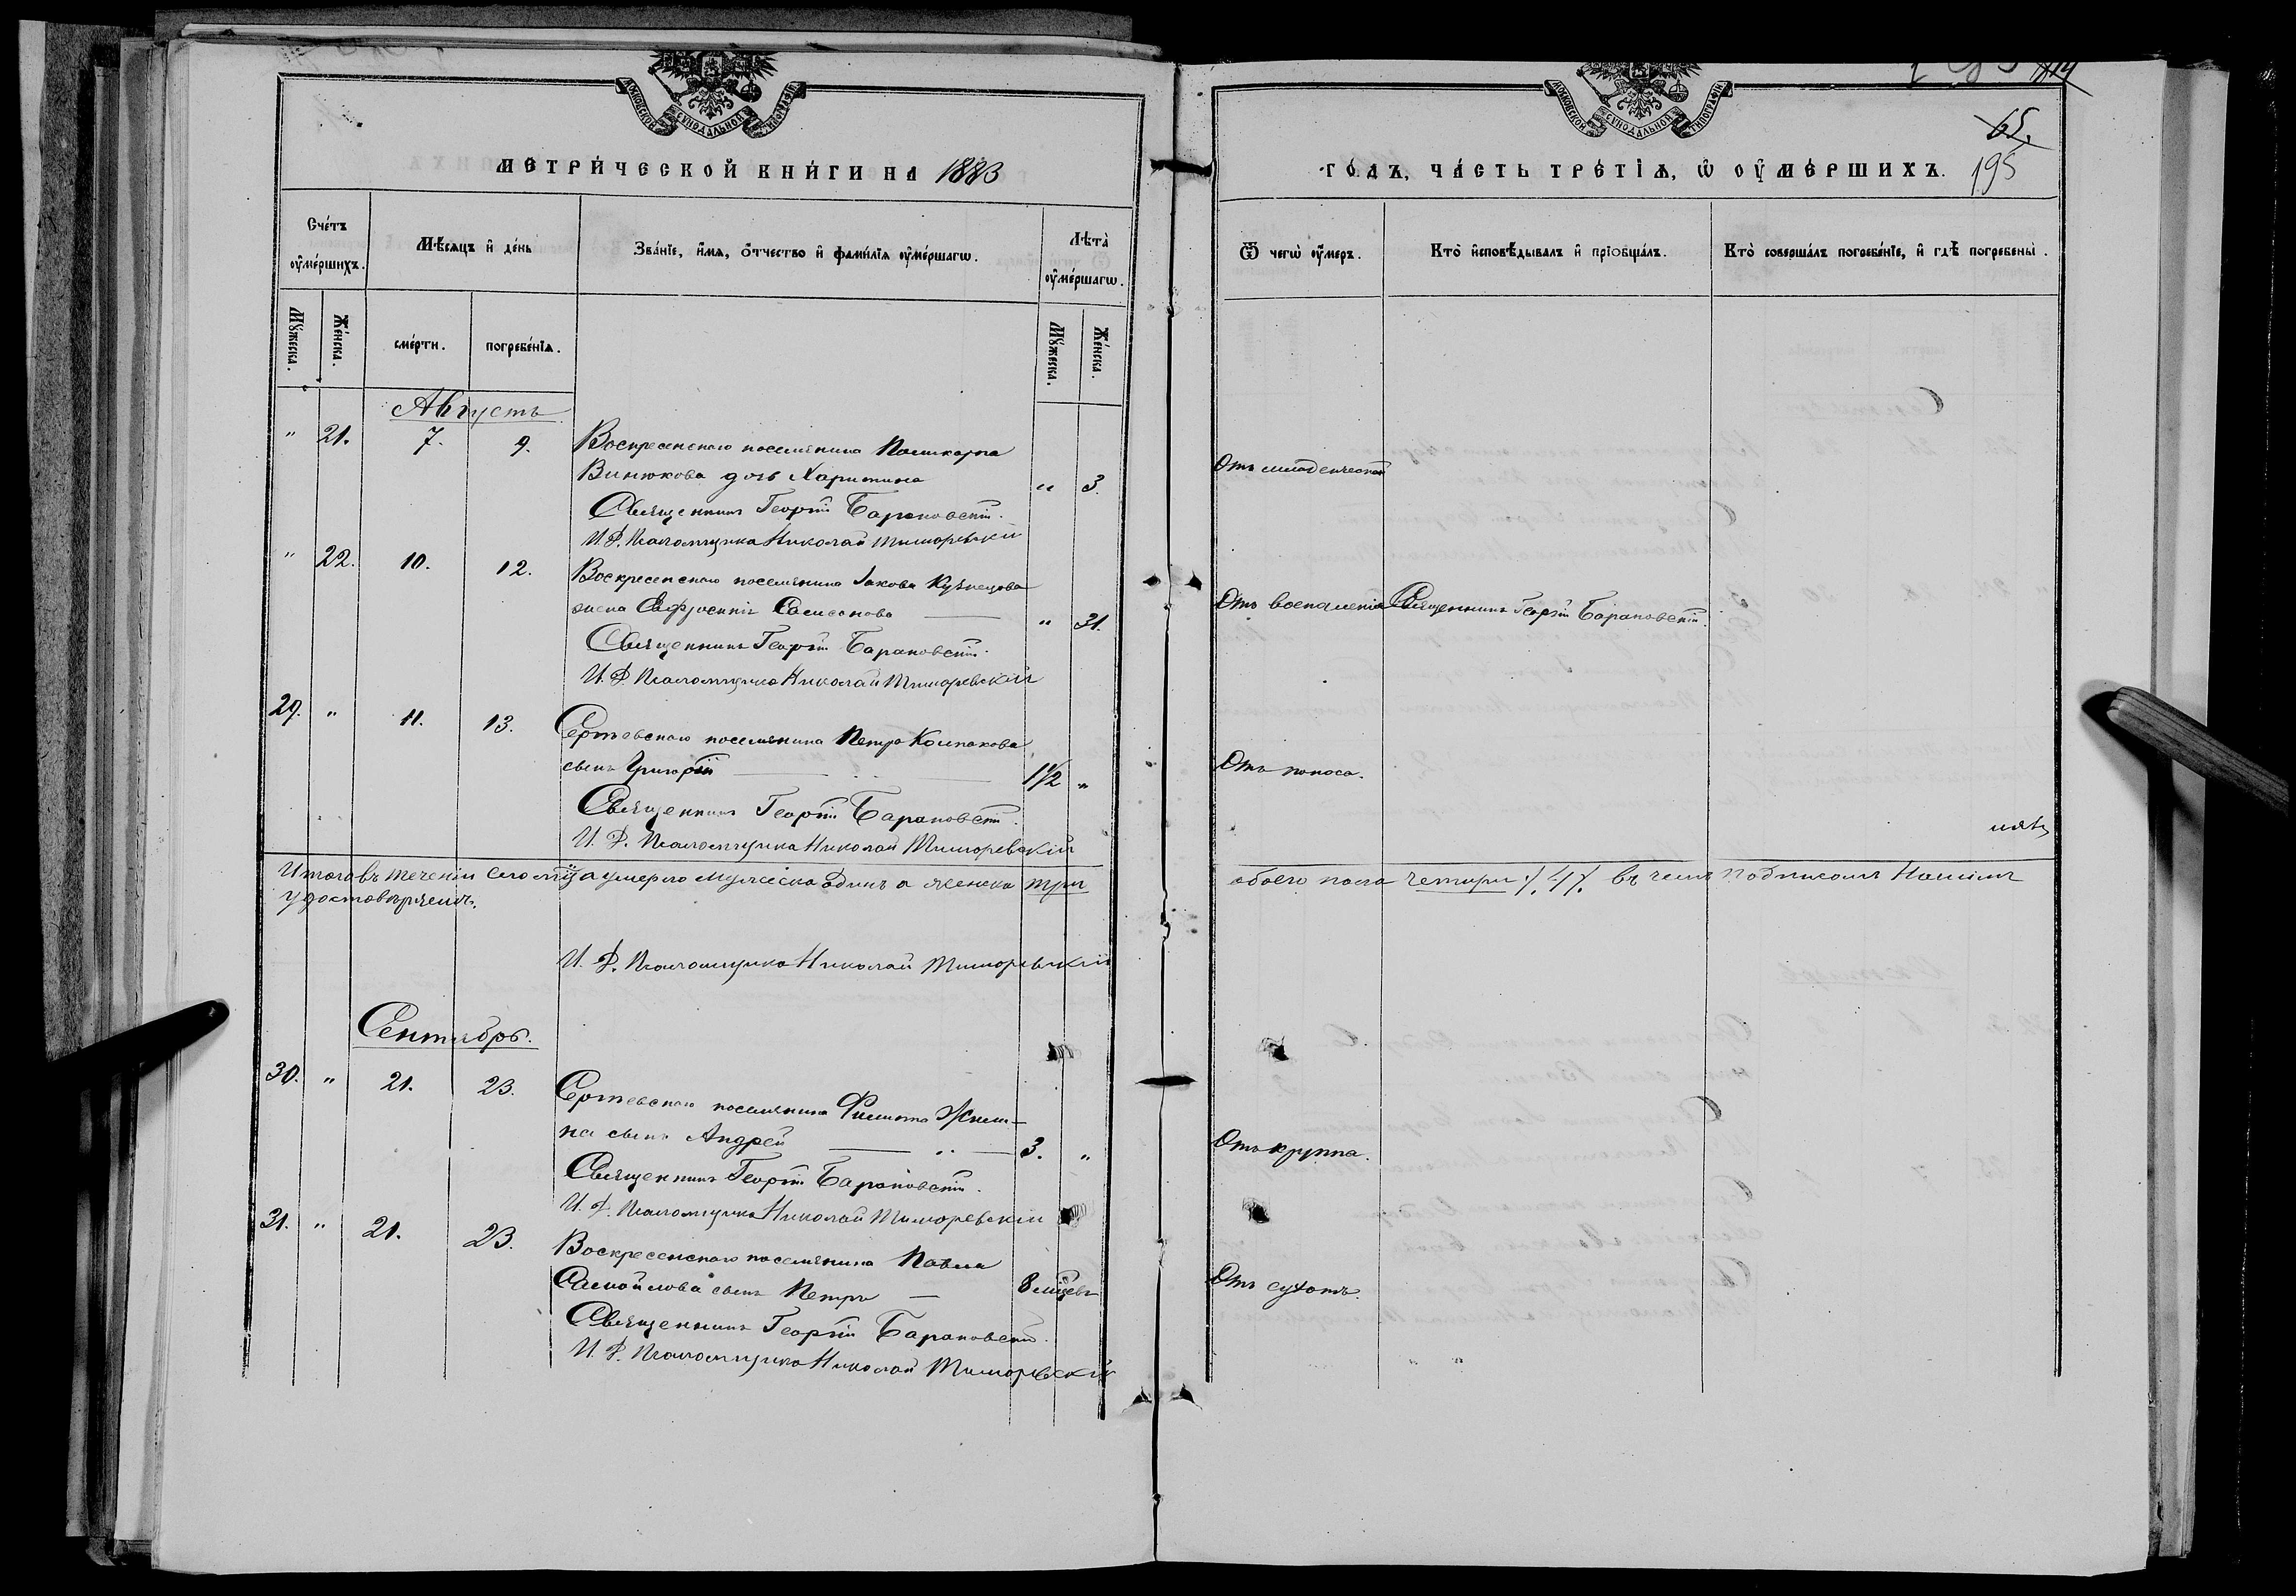 МОСКОВСКОЙ СѴНОДАЛЬНОЙ ТИПОГРАФІИ
МЕТРИ́ЧЕСКОЙ КНИ́ГИ НА 1883
Сче́тъ оу҆ме́ршихъ.
Мѣ́сяцъ и҆ де́нь
Зва́нїе, и҆́мя, ѻ҆́тчество и҆ фами́лїя оу҆ме́ршагѡ.
Лѣта̀ оу҆ме́ршагѡ.
Мꙋ́жеска.
Же́нска.
сме́рти.
погребе́нїя.
Мꙋ́жеска.
Же́нска.
Августъ
" 21. 7. 9. Воскресенскаго поселянина Поликарпа
Винюкова дочь Харитина " 3.
Священникъ Георгій Барановскій.
И. Д. Псаломщика Николай Тиморевскій
" 22. 10. 12. Воскресенскаго поселянина Іакова Кузнецова
жена Евфросинія " 31.
Священникъ Георгій Барановскій.
И. Д. Псаломщика Николай Тиморевскій
29. " 11. 13. поселянина Петра Колпакова
сынъ Григорій 1½ "
Священникъ Георгій Барановскій.
И. Д. Псаломщика Николай Тиморевскій
Итого въ теченіи сего м-ца умерло мужеска одинъ а женска три
удостовѣряемъ.
И. Д. Псаломщика Николай Тиморевскій
Сентябрь.
30. " 21. 23. поселянина Филиппа Жили-
на сынъ Андрей 3. "
Священникъ Георгій Барановскій.
И. Д. Псаломщика Николай Тиморевскій
31. " 21. 23. Воскресенскаго поселянина Павла
Самойлова сынъ Петръ — 8 мѣсцевъ
Священникъ Георгій Барановскій.
И. Д. Псаломщика Николай Тиморевскій
МОСКОВСКОЙ СѴНОДАЛЬНОЙ ТИПОГРАФІИ
65.
195
ГО́ДЪ, ЧА́СТЬ ТРЕ́ТІѦ, Ѡ҆ ОУ҆МЕ́РШИХЪ.
Ѿ чегѡ̀ оу҆́меръ.
Кто̀ и҆сповѣ́дывалъ и҆ прїобща́лъ.
Кто̀ соверша́лъ погребе́нїе, и҆ гдѣ̀ погребены̀.
Отъ младенческой
Отъ воспаленія Священникъ Георгій Барановскій.
Отъ поноса.
обоего пола четыри /. 4 /. въ чемъ подписомъ нашимъ
Отъ круппа.
Отъ сухотъ.